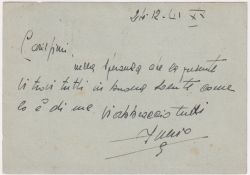 24-12-41 XX
Carissimi,
nella speranza che la presente
vi trovi tutti in buona salute come
lo è di me. Vi abbraccio tutti